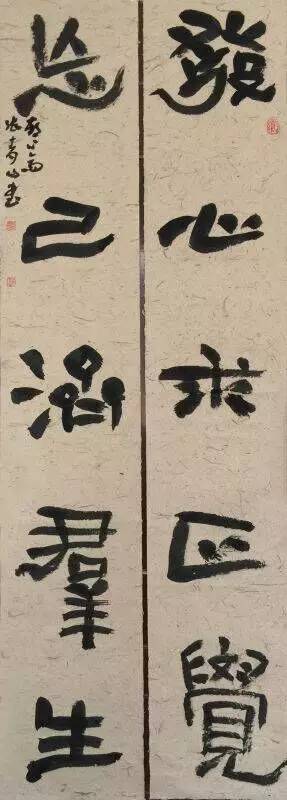 發心求正覺
忘己濟羣生